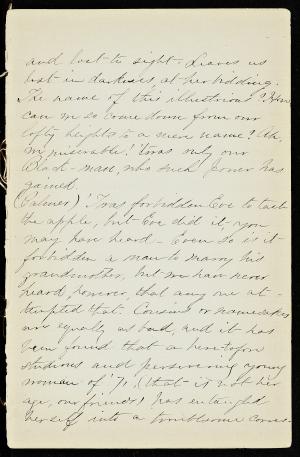 and lost to sight. Leaves us
lost in darkness, at her bidding.
The name of this illustrious? How
can we so come down from our
lofty heights to a mere name? Ah,
miserable! 'twas only our
Black-man, who such power has
gained.
(Calmer) 'Twas forbidden Eve to taste
the apple, but Eve did it, you
may have heard — Even so is it
forbidden a man to marry his
grandmother, but we have never
heard, however, that any one at-
tempted that. Cousins or namesakes
are equally as bad, and it has
been found that a heretofore
studious and persevering young
woman of '71, (that is not her
age, our friends) has entangled
herself into a troublesome corres-